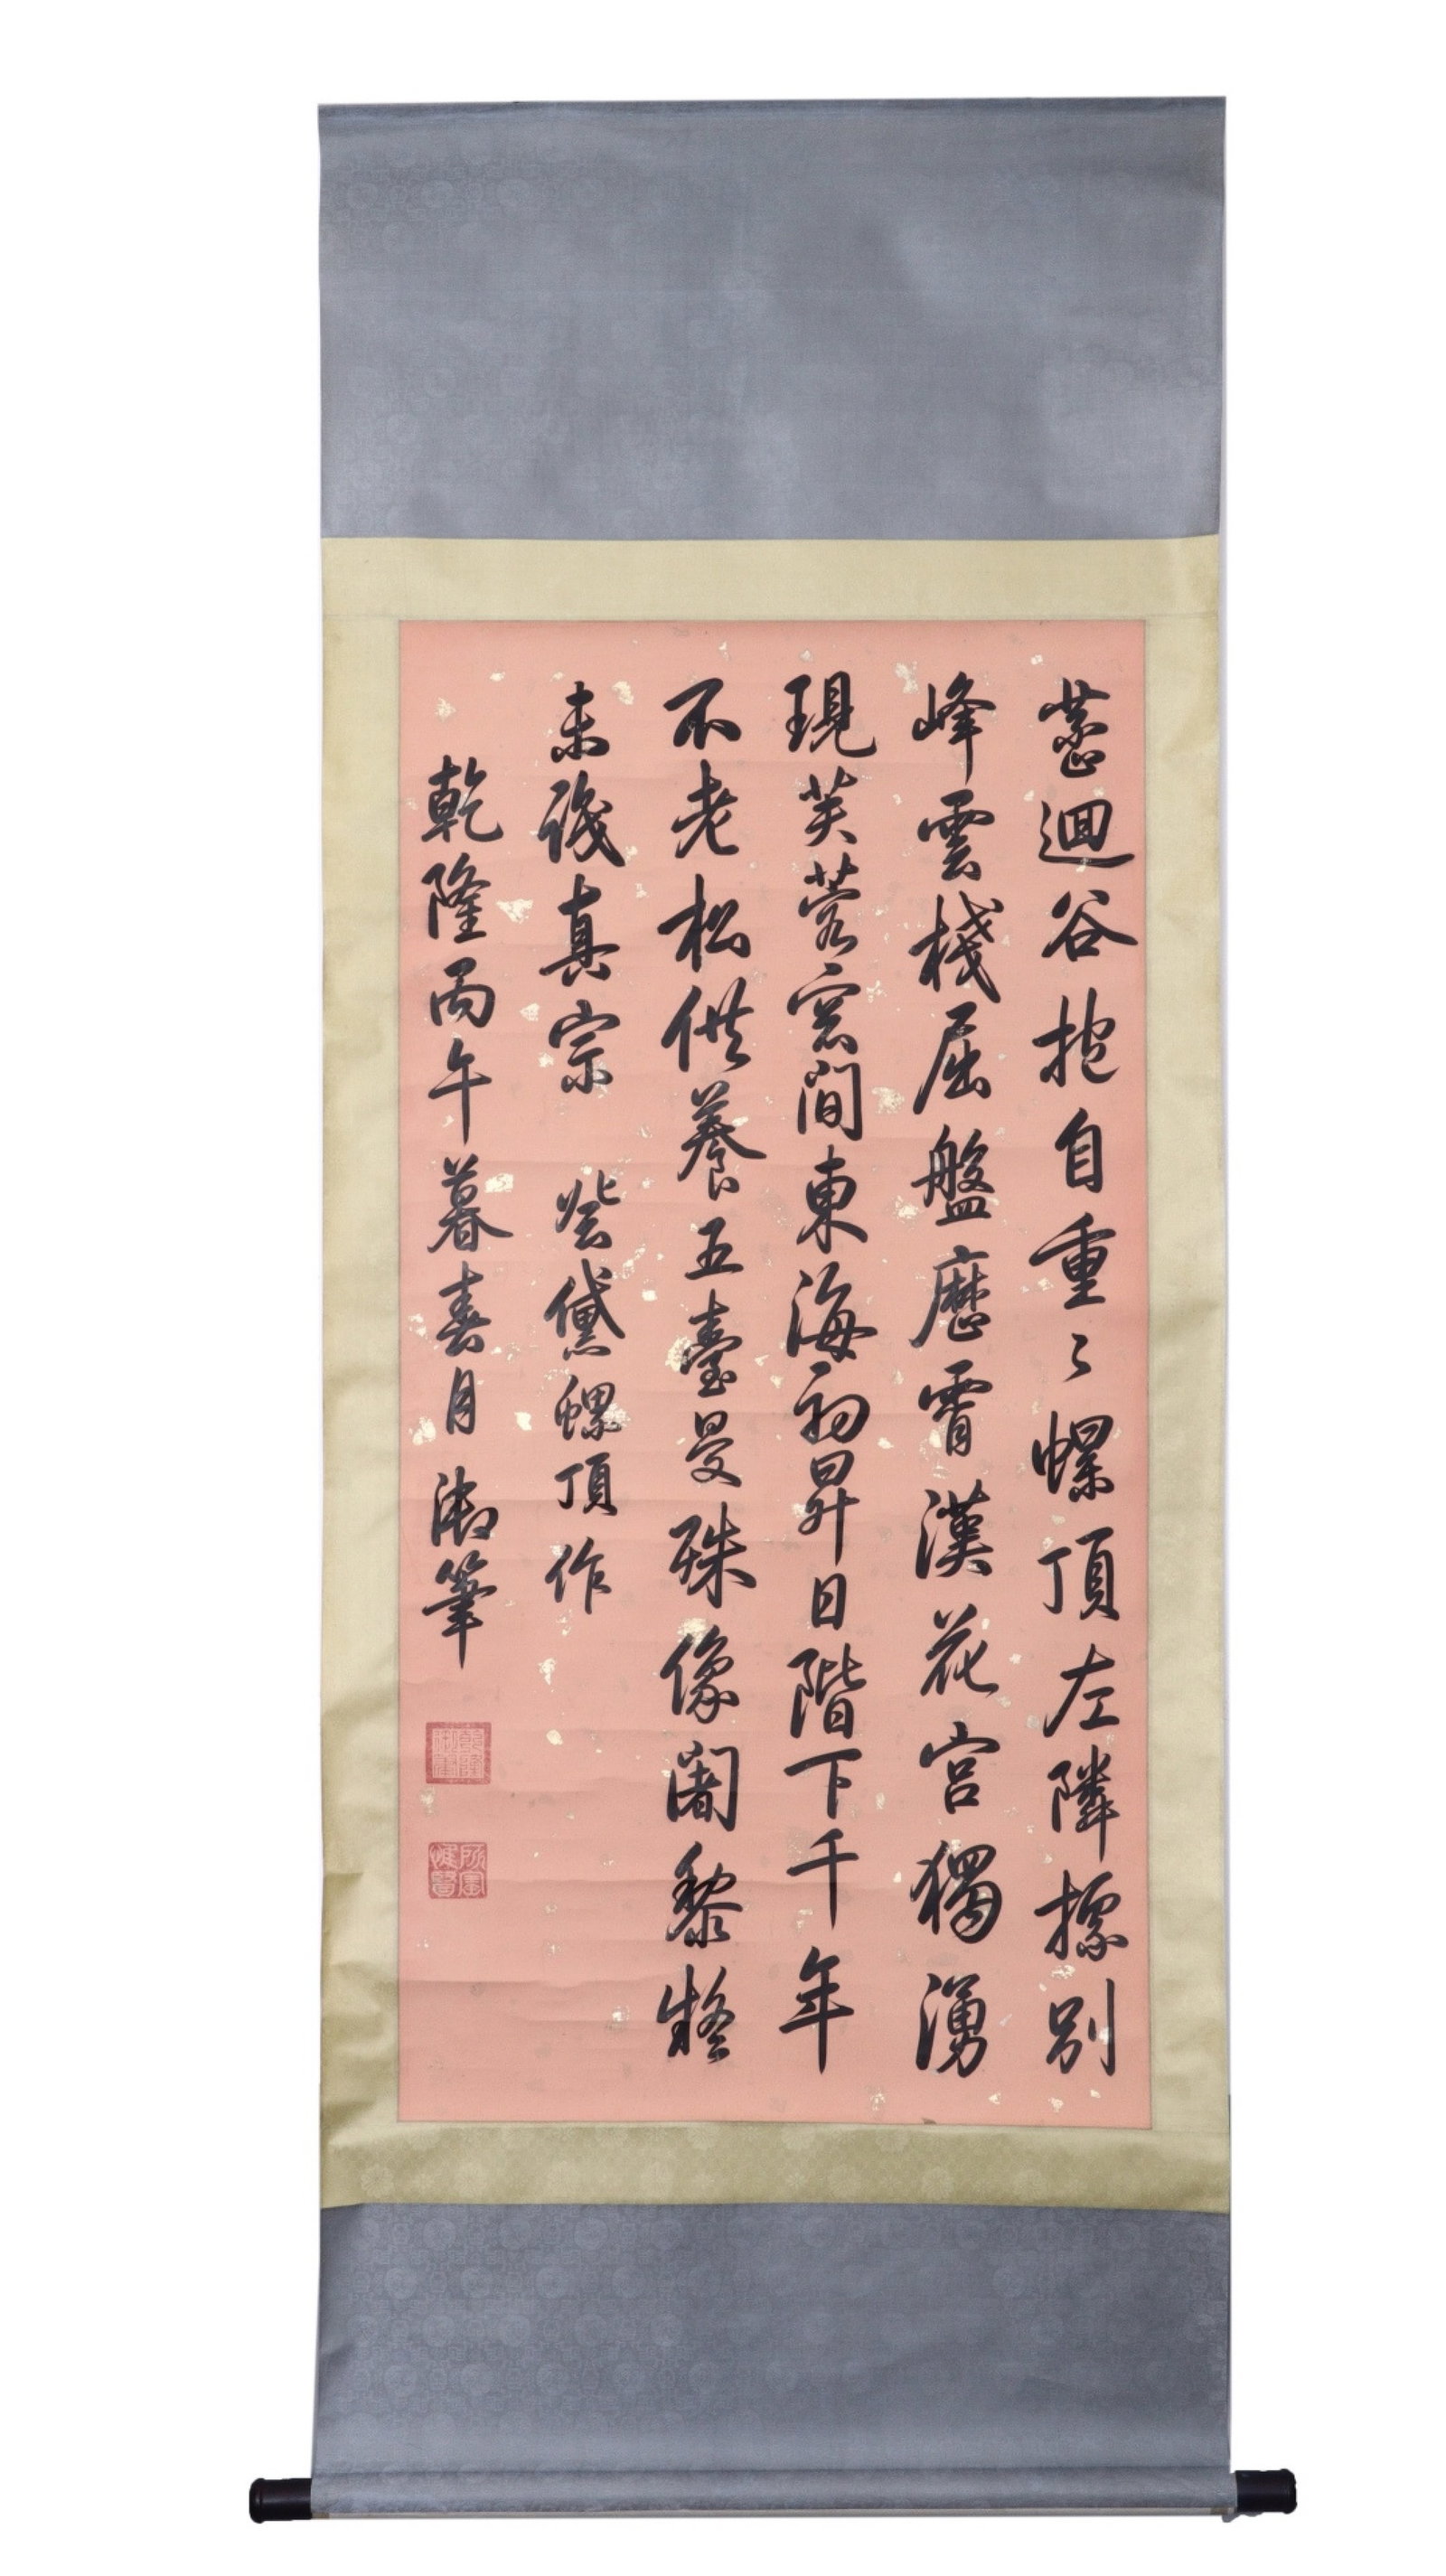 蕊迴谷抱自重〻螺頂左隣標別
峰雲棧屈盤歷霄漢花宮獨湧
現芙蓉窓間東海初昇日階下千年
不老松供養五臺曼殊像闍黎疑
未識真宗 登黛螺頂作
乾隆丙午暮春月 御筆